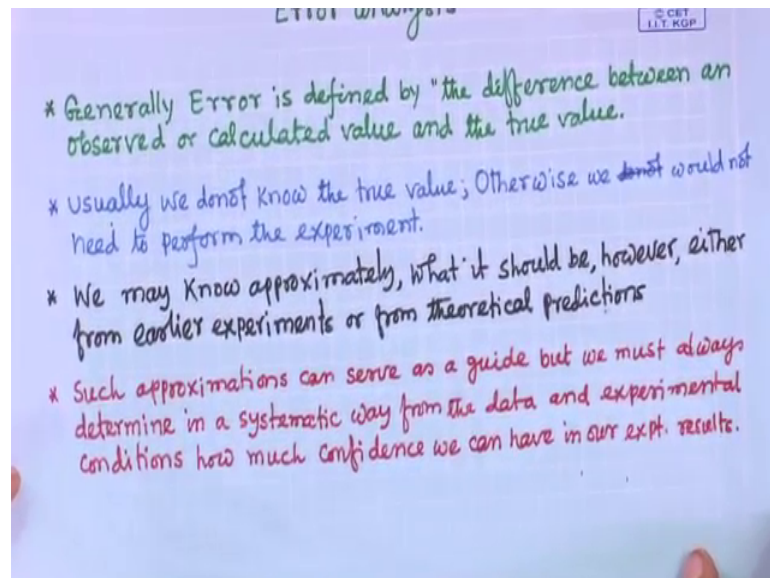 Error analysis
© CET
I.I.T. KGP
* Generally Error is defined by "the difference between an
observed or calculated value and the true value.
* Usually we donot know the true value; Otherwise we donot would not
need to perform the experiment.
* We may know approximately, what it should be, however, either
from earlier experiments or from theoretical predictions
* Such approximations can serve as a guide but we must always
determine in a systematic way from the data and experimental
conditions how much confidence we can have in our expt. results.